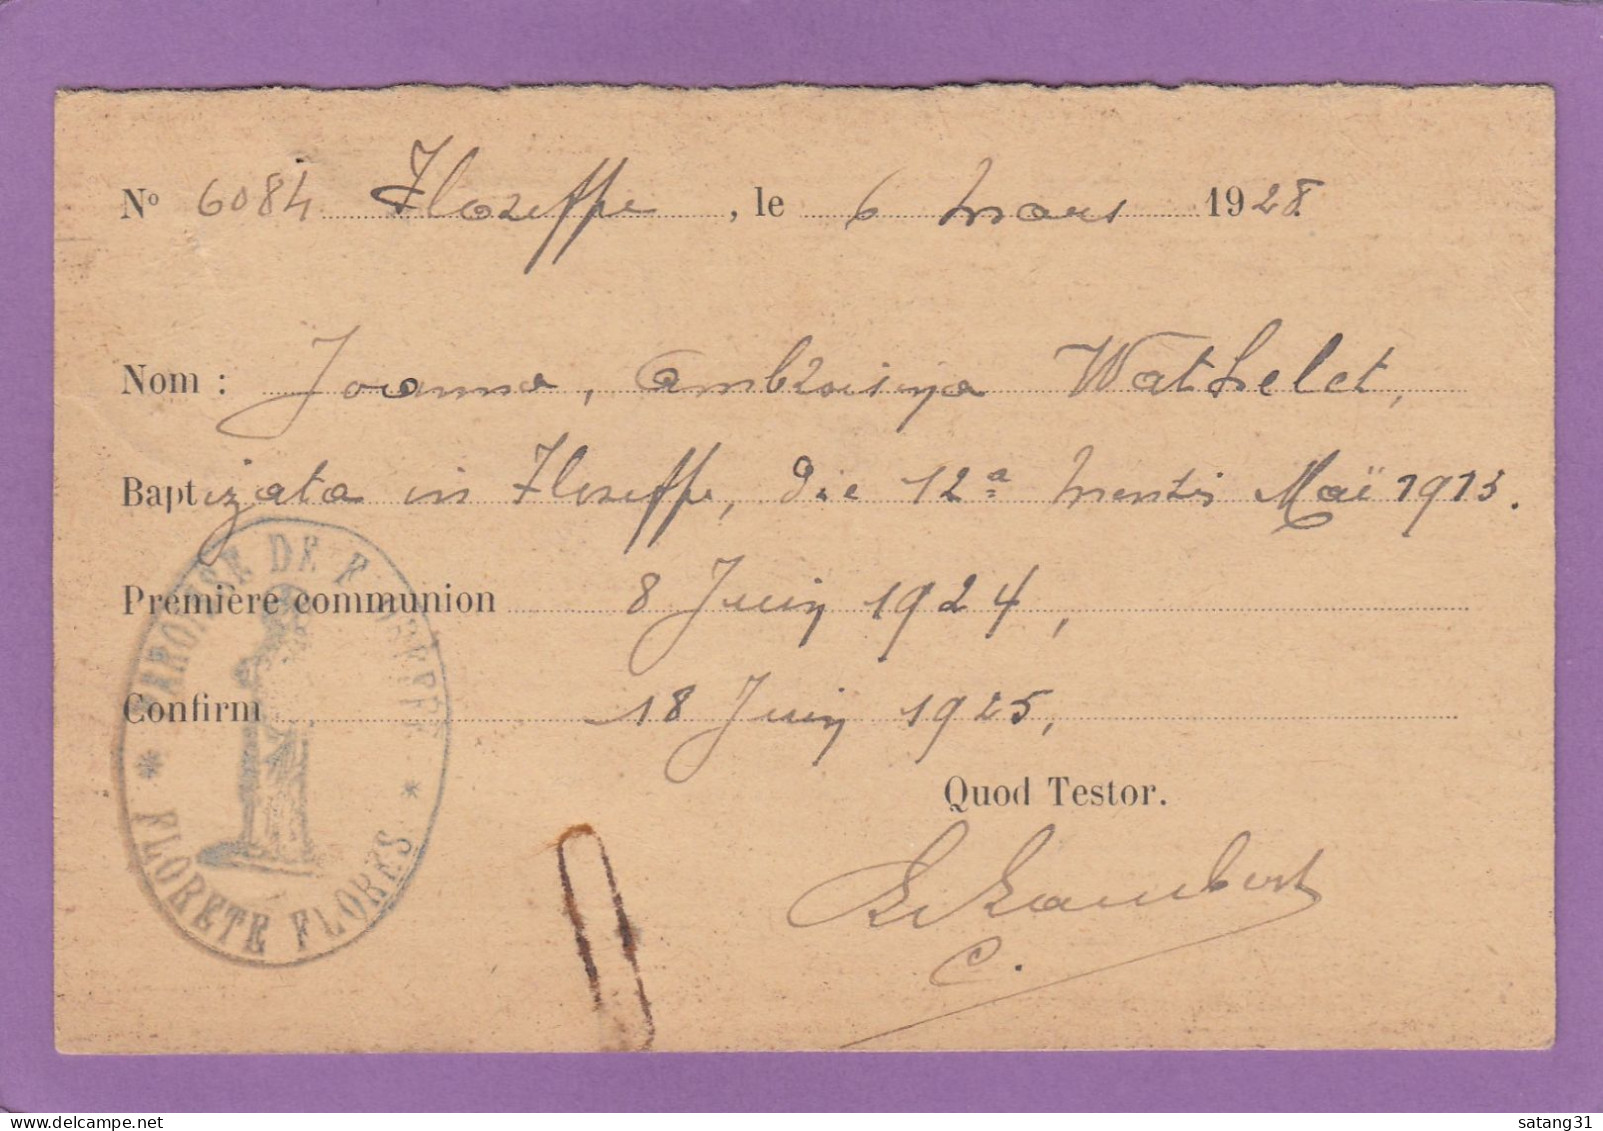 Nº 6084 Floreffe, le 6 Mars 1928
Nom : Joanna, Ambroisina Wathelet,
Baptizata in Floreffe, die 12ª mensis Maï 1913.
Première communion 8 Juin 1924,
Confirm 18 Juin 1925,
Quod Testor.
Lambert
C.
PAROISSE DE FLOREFFE
* FLORETE FLORES *
satang31